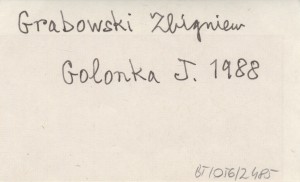 Grabowski Zbigniew
Golonka J. 1988
BT/OT6/2485